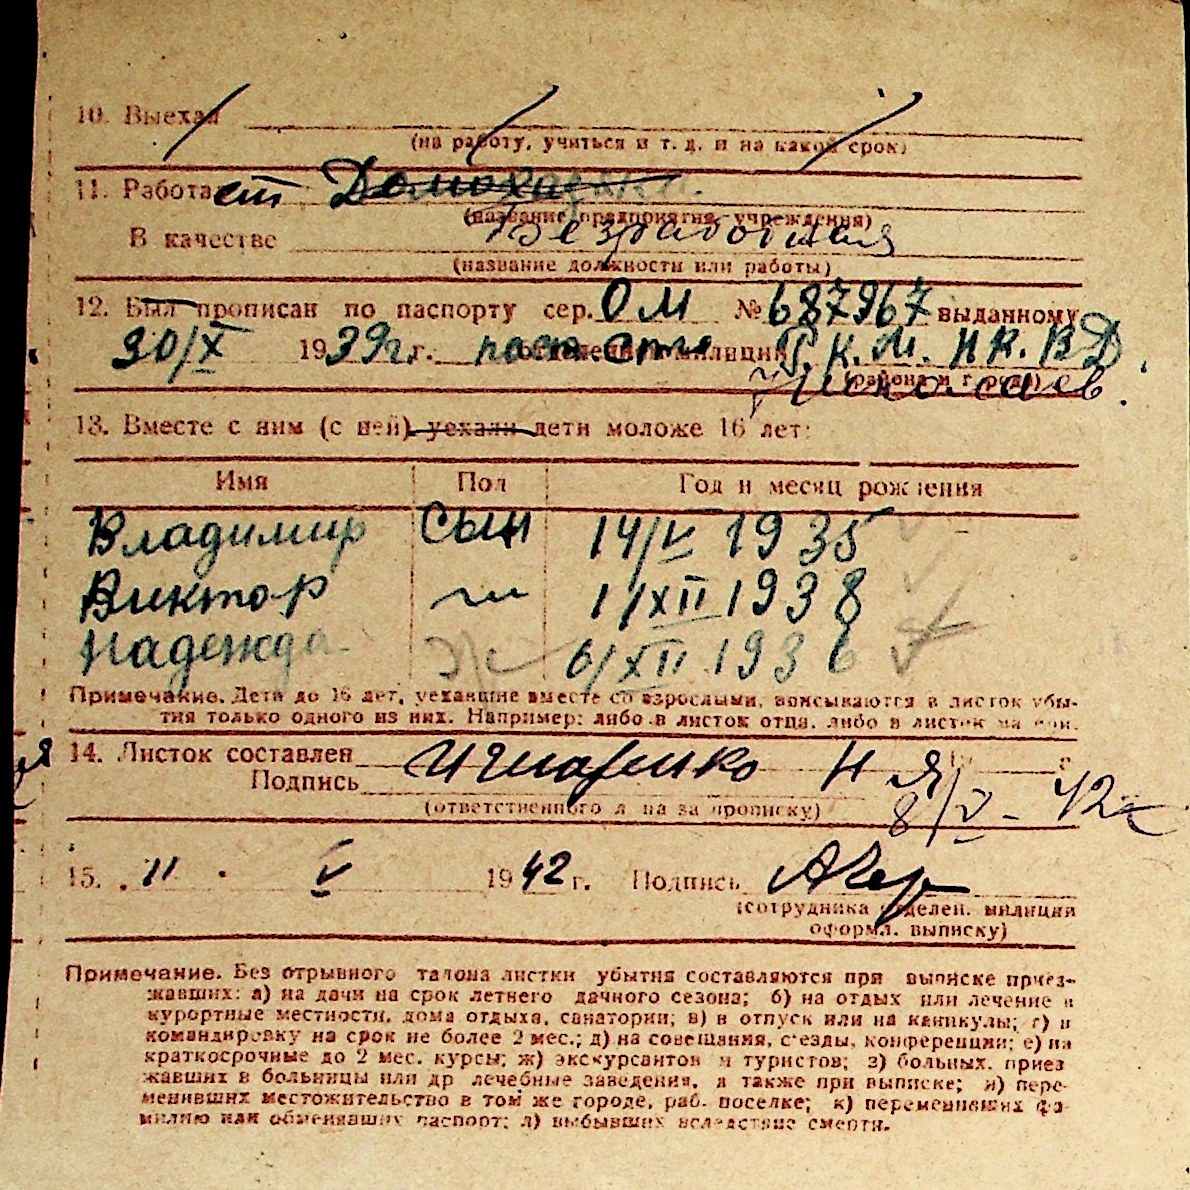 10. Выехал
(на работу, учиться и т. д. и на какой срок)
11. Работает Домохозяйка
(название предприятия, учреждения)
В качестве Безработная
(название должности или работы)
12. Был прописан по паспорту сер. ОМ № 687967 выданному
30/X 1939 г. г. отделением милиции Р. К. М. НК. ВД.
(района и города)
Николаев.
13. Вместе с ним (с ней) уехали дети моложе 16 лет:
Имя Пол Год и месяц рождения
Владимир сын 14/V 1935
Виктор 1/XII 1938
Надежда Ж 6/XII 1936
Примечание. Дети до 16 лет, уехавшие вместе со взрослыми, вписываются в листок убы-
тия только одного из них. Например: либо в листок отца, либо в листок матери.
14. Листок составлен
Подпись Игнатенко Н Я
(ответственного лица за прописку) 8/V - 42
15. 11 V 1942 г. Подпись
(сотрудника отделен. милиции
оформл. выписку)
Примечание. Без отрывного талона листки убытия составляются при выписке приез-
жавших: а) на дачи на срок летнего дачного сезона; б) на отдых или лечение в
курортные местности, дома отдыха, санатории; в) в отпуск или на каникулы; г) в
командировку на срок не более 2 мес.; д) на совещания, с'езды, конференции; е) на
краткосрочные до 2 мес. курсы; ж) экскурсантов и туристов; з) больных, приез
жавших в больницы или др лечебные заведения, а также при выписке; и) пере-
менивших местожительство в том же городе, раб. поселке; к) переменивших фа-
милию или обменявших паспорт; л) выбывших вследствие смерти.